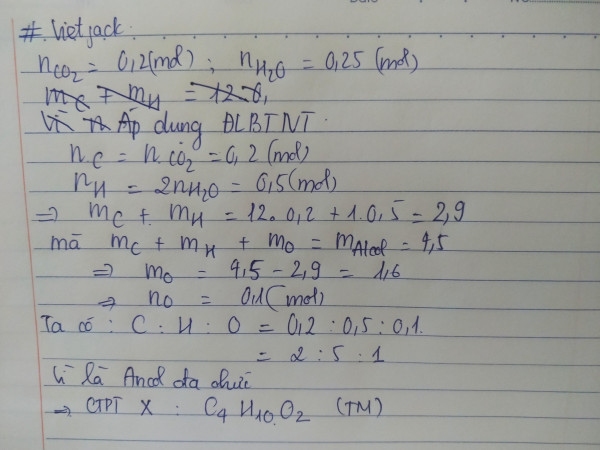 # Vietjack.
nCO2 = 0,2 (mol) ; nH2O = 0,25 (mol)
mC + mH = 12.0,
Vì n Áp dụng ĐLBTNT.
nC = nCO2 = 0,2 (mol)
nH = 2nH2O = 0,5 (mol)
=> mC + mH = 12.0,2 + 1.0,5 = 2,9
mà mC + mH + mO = mAlcol = 4,5
=> mO = 4,5 - 2,9 = 1,6
=> nO = 0,1 (mol)
Ta có : C : H : O = 0,2 : 0,5 : 0,1.
= 2 : 5 : 1
Vì là Ancol đa chức
=> CTPT X : C4H10O2 (TM)